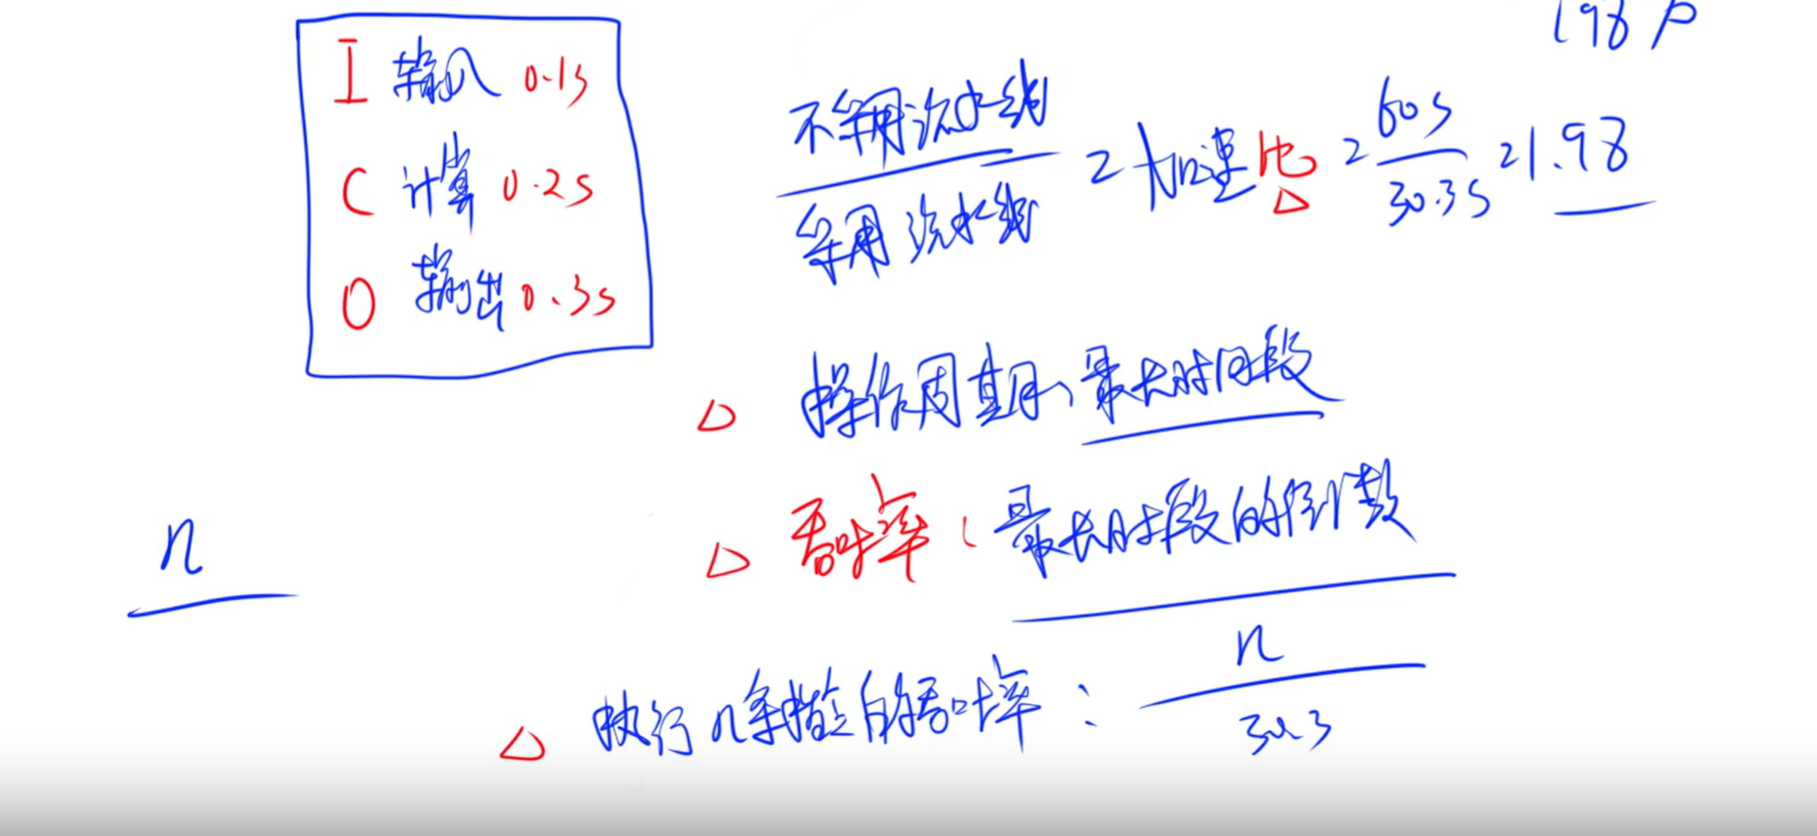 198 P
I 输入 0.1s
C 计算 0.2s
O 输出 0.3s
不采用流水线 / 采用流水线 = 加速比 = 60s / 30.3s = 1.98
△ 操作周期：最长时间段
△ 吞吐率：最长时段的倒数
n
△ 执行n条指令的吞吐率： n / 30.3